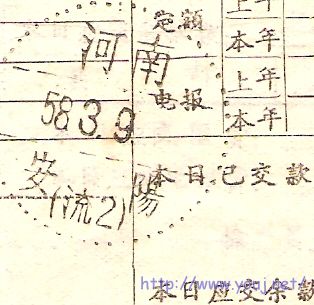 上年
定额
本年
河南
上年
电报
58.3.9
本年
安陽
(流2)
本日已交款
http://www.youj.net/
本日应交余款